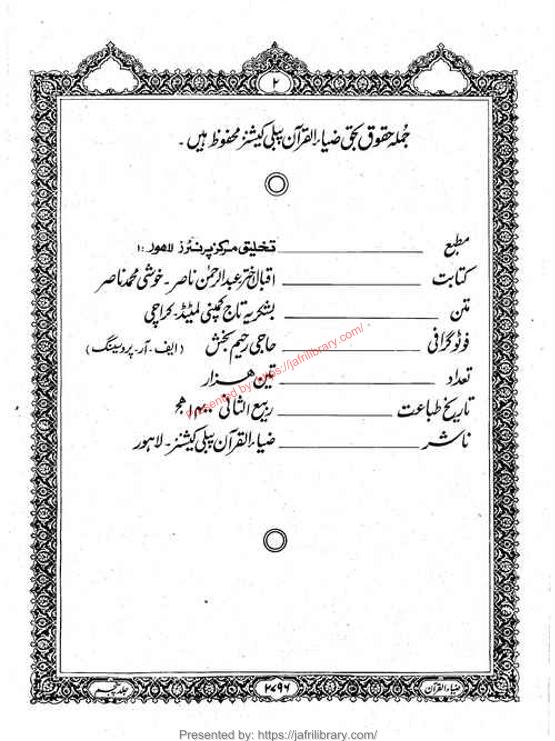 ۲
جملہ حقوق بحق ضیاء القرآن پبلی کیشنز محفوظ ہیں۔
مطبع ــــــ تخلیق مرکز پرنٹرز لاہور ۱۰
کتابت ــــــ اقبال اختر عبدالرحمٰن ناصر۔ خوشی محمد ناصر
متن ــــــ بشکریہ تاج کمپنی لمیٹڈ۔ کراچی
فوٹوگرافی ــــــ حاجی رحیم بخش (ایف۔ آر۔ پروسینگ)
تعداد ــــــ تین ہزار
تاریخ طباعت ــــــ ربیع الثانی ۱۴۰۰ھ
ناشر ــــــ ضیاء القرآن پبلی کیشنز۔ لاہور
Presented by: https://jafrilibrary.com/
ضیاء القرآن
۲۷۹۶
جلد پنجم
Presented by: https://jafrilibrary.com/